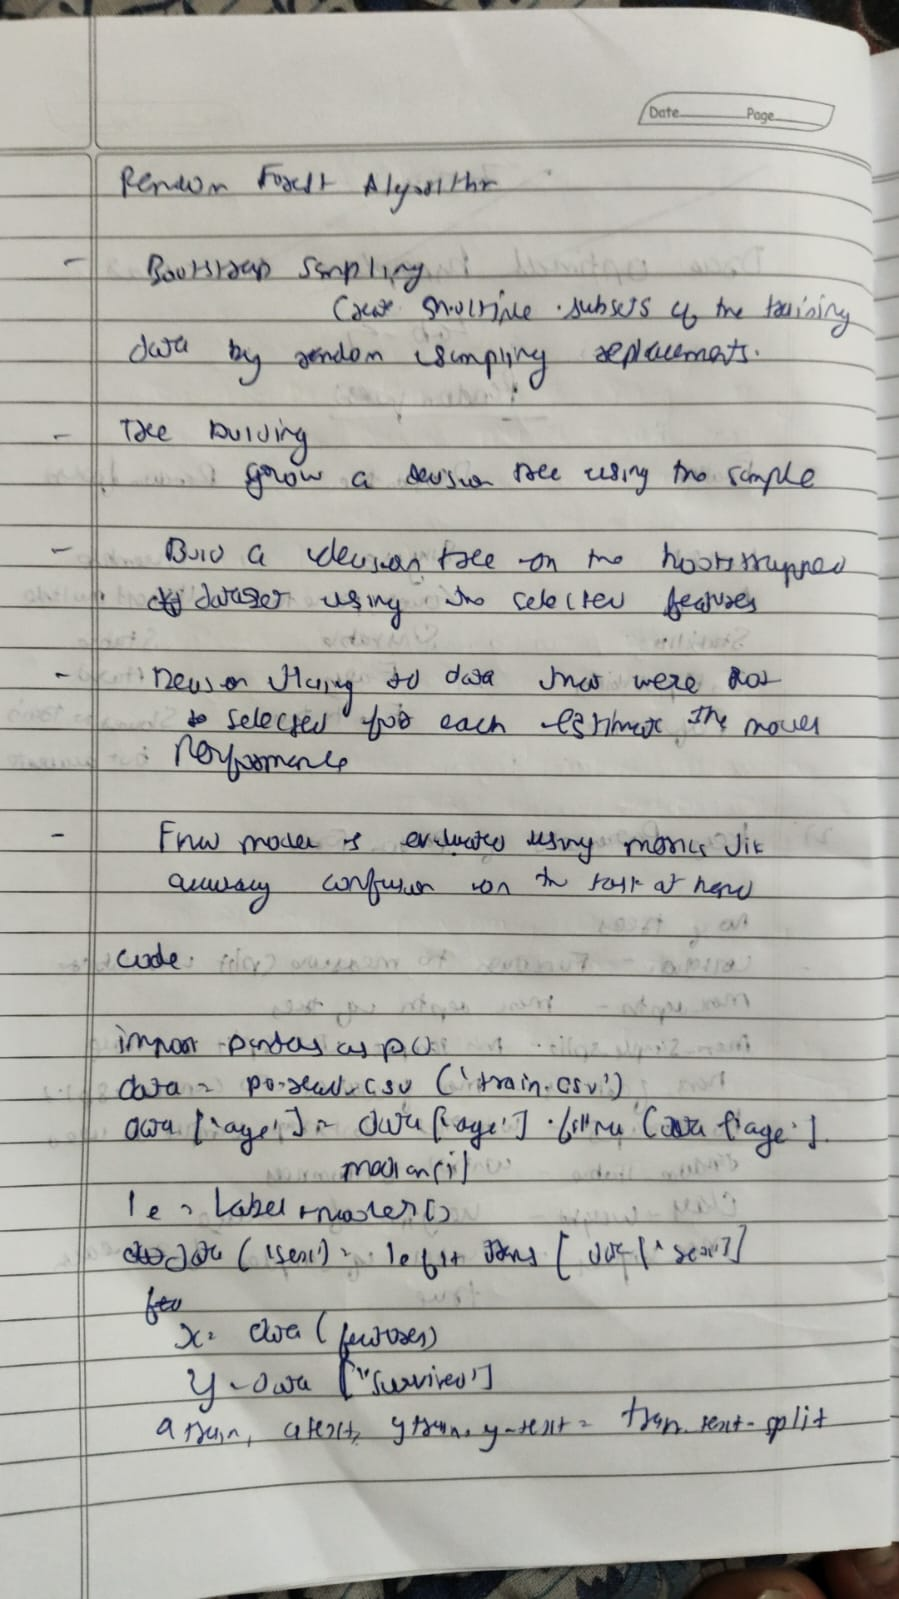 Date Page
Random Forest Algorithm
- Bootstrap Sampling
Create multiple subsets of the training
data by random sampling replacements.
- Tree Building
grow a decision tree using the sample
- Build a decision tree on the bootstrapped
dataset using the selected features
- using data that were not
selected for each estimate the model
Performance
- Final model is evaluated using metrics like
accuracy confusion on the task at hand
code:
import pandas as pd
data = pd.read_csv ('train.csv')
data ['age'] = data ['age'].fillna (data ['age'].
median()
le = Label encoder()
data ('sex') = le fit trans [ data ['sex']
x = data (features)
y = data ["survived"]
train, test, ytrain, y-test = train test-split